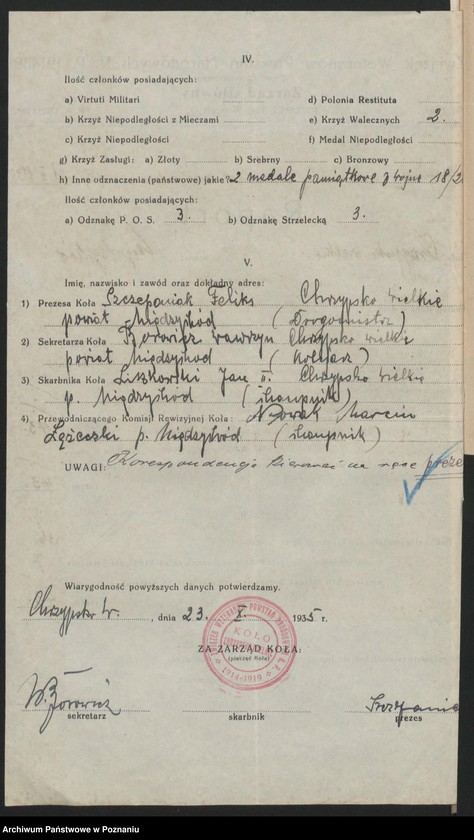 IV.
Ilość członków posiadających:
a) Virtuti Militari d) Polonia Restituta
b) Krzyż Niepodległości z Mieczami e) Krzyż Walecznych 2.
c) Krzyż Niepodległości f) Medal Niepodległości
g) Krzyż Zasługi: a) Złoty b) Srebrny c) Bronzowy
h) Inne odznaczenia (państwowe) jakie? 2 medale pamiątkowe z wojny 18/2
Ilość członków posiadających:
a) Odznakę P. O. S. 3. b) Odznakę Strzelecką 3.
V.
Imię, nazwisko i zawód oraz dokładny adres:
1) Prezesa Koła Szczepaniak Feliks Chrzypsko wielkie
powiat Międzychód (Drogomistrz)
2) Sekretarza Koła Borowicz Wawrzyn Chrzypsko wielki
powiat Międzychod
3) Skarbnika Koła Jan II. Chrzypsko wielkie
p. Międzychod
4) Przewodniczącego Komisji Rewizyjnej Koła: Nowak Marcin
Łężeczki p. Międzychód
UWAGI: Korespondencję kierować na ręce preze
Wiarygodność powyższych danych potwierdzamy.
Chrzypsko w. , dnia 23. X. 1935 r.
KOŁO
1914-1919
ZA ZARZĄD KOŁA:
(pieczęć Koła)
W. Borowicz
sekretarz skarbnik prezes
Archiwum Państwowe w Poznaniu